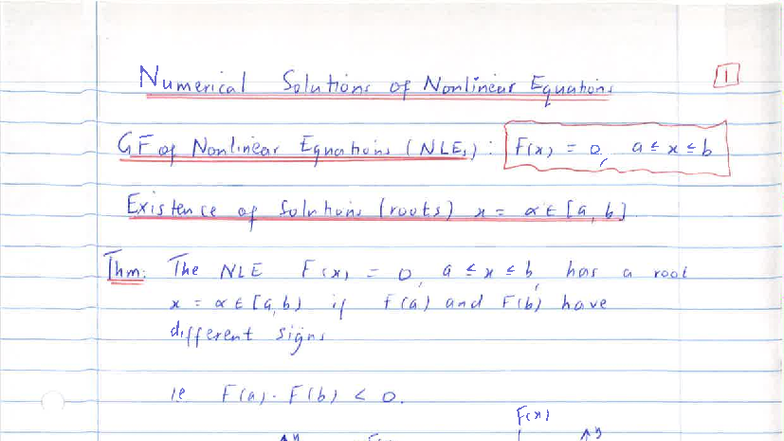 Numerical Solutions of Nonlinear Equations
1
GF of Nonlinear Equations (NLEs): F(x) = 0, a ≤ x ≤ b
Existence of Solutions (roots) x = α ∈ [a, b]
Thm: The NLE F(x) = 0, a ≤ x ≤ b, has a root
x = α ∈ [a, b] if F(a) and F(b) have
different signs
ie F(a) . F(b) < 0.
F(x)
y y